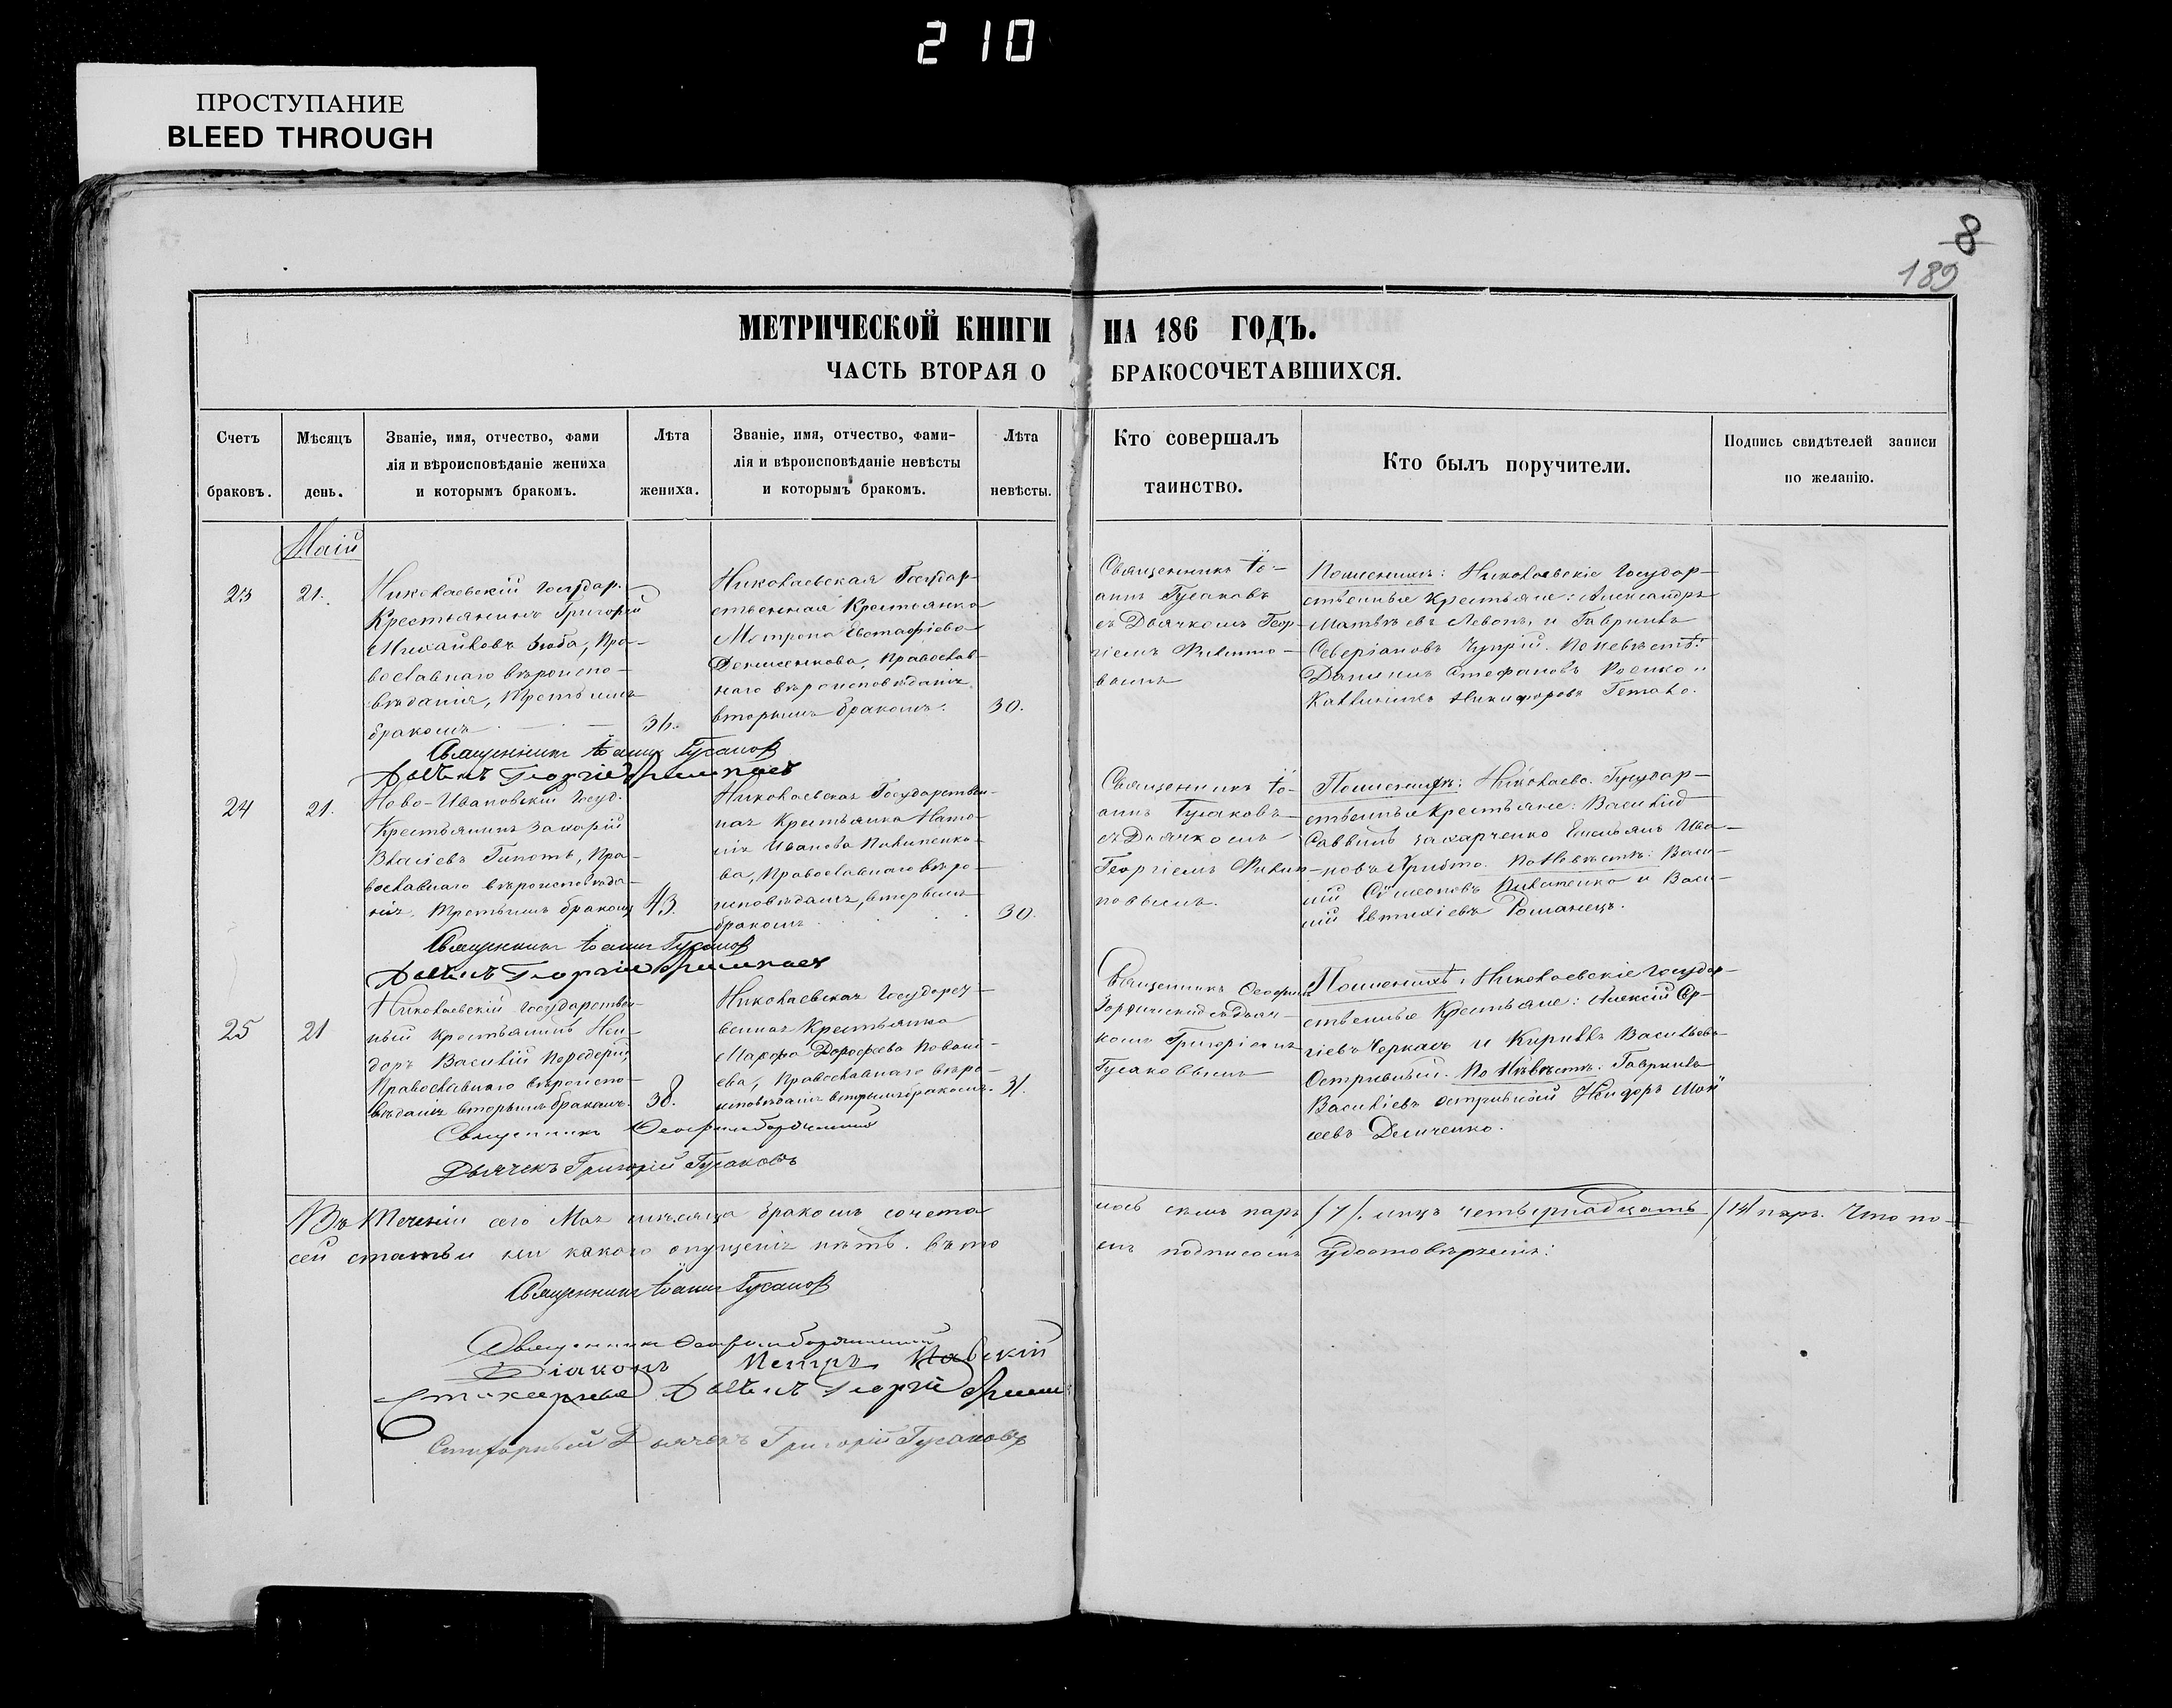 210
ПРОСТУПАНИЕ
BLEED THROUGH
8
189
МЕТРИЧЕСКОЙ КНИГИ НА 186 ГОДЪ.
ЧАСТЬ ВТОРАЯ О БРАКОСОЧЕТАВШИХСЯ.
Счетъ
браковъ.
Мѣсяцъ
день.
Званіе, имя, отчество, фами
лія и вѣроисповѣданіе жениха
и которымъ бракомъ.
Лѣта
жениха.
Званіе, имя, отчество, фами-
лія и вѣроисповѣданіе невѣсты
и которымъ бракомъ.
Лѣта
невѣсты.
Кто совершалъ
таинство.
Кто былъ поручители.
Подпись свидѣтелей записи
по желанію.
Маій
23
21.
Николаевскій Государ.
Крестьянинъ Григорій
Михайловъ Зюба, Пра-
вославнаго вѣроиспо-
вѣданія, третьимъ
бракомъ
36.
Николаевская Государ-
ственная Крестьянка
Матрона Евстафіева
Денисенкова, Православ-
наго вѣроисповѣданія
вторымъ бракомъ.
30.
Священникъ Іо-
аннъ Гусаковъ
съ Дьячкомъ Геор-
гіемъ Филиппо-
вымъ
По женихѣ: Николаевскіе Государ-
ственные Крестьяне: Александръ
Матвѣевъ Левонъ, и Гавріилъ
Северіановъ Чупрій. По невѣстѣ:
Даніилъ Стефановъ Роенко и
Каллиникъ Никифоровъ Гетало.
Священникъ Іоаннъ Гусаков
24
21.
Ново-Ивановскій Госуд.
Крестьянинъ Захарій
Власіевъ Гипотъ, Пра-
вославнаго вѣроисповѣда-
нія, третьимъ бракомъ
43.
Николаевская Государствен-
ная Крестьянка Ната-
лія Иванова Пилипенко-
ва, Православнаго вѣро-
исповѣданія, вторымъ
бракомъ
30.
Священникъ Іо-
аннъ Гусаковъ
съ Дьячкомъ
Георгіемъ Филип-
повымъ.
По женихѣ: Николаевс. Государ-
ственные Крестьяне: Василій
Саввинъ Захарченко Емельянъ Ива-
новъ Христо. По Невѣстѣ: Васи-
лій Сѵмеоновъ Пилипенко и Васи-
лій Евтихіевъ Романецъ.
Священникъ Іоаннъ Гусаков
25
21
Николаевскій Государствен-
ный Крестьянинъ Иси-
доръ Василій Передерій,
Православнаго вѣроиспо-
вѣданія вторымъ бракомъ.
38.
Николаевская Государст-
венная Крестьянка
Марфа Дорофеева
ева, Православнаго вѣро-
исповѣданія вторымъ бракомъ.
31.
Священникъ Ѳеофилъ
съ Дьяч-
комъ Григоріемъ
Гусаковымъ
По женихѣ: Николаевскіе Государ-
ственные Крестьяне: Алексій Сер-
гіевъ Черкасъ и Кириллъ Васильевъ
Остривный. По Невѣстѣ: Гавріилъ
Василіевъ Остривный Исидоръ Мои
сеевъ Демченко.
Священникъ Ѳеофилъ
Дьячекъ Григорій Гусаковъ
Въ теченіи сего Мая мѣсяца бракомъ сочета
лось семь паръ /7/. лицъ четырнадцать /14/ паръ. Что по
сей статьи ни какого опущенія нѣтъ. въ то
мъ подписомъ удостовѣряемъ:
Священникъ Іоаннъ Гусаков
Священникъ Ѳеофилъ
Діаконъ Петръ
Дьячекъ Григорій Гусаковъ